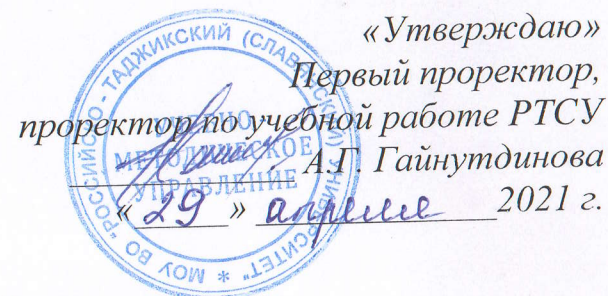 «Утверждаю»
Первый проректор,
проректор по учебной работе РТСУ
А.Г. Гайнутдинова
«29» апреля 2021 г.
МОУ ВО "РОССИЙСКО - ТАДЖИКСКИЙ (СЛАВЯНСКИЙ) УНИВЕРСИТЕТ" *
УЧЕБНО
МЕТОДИЧЕСКОЕ
УПРАВЛЕНИЕ